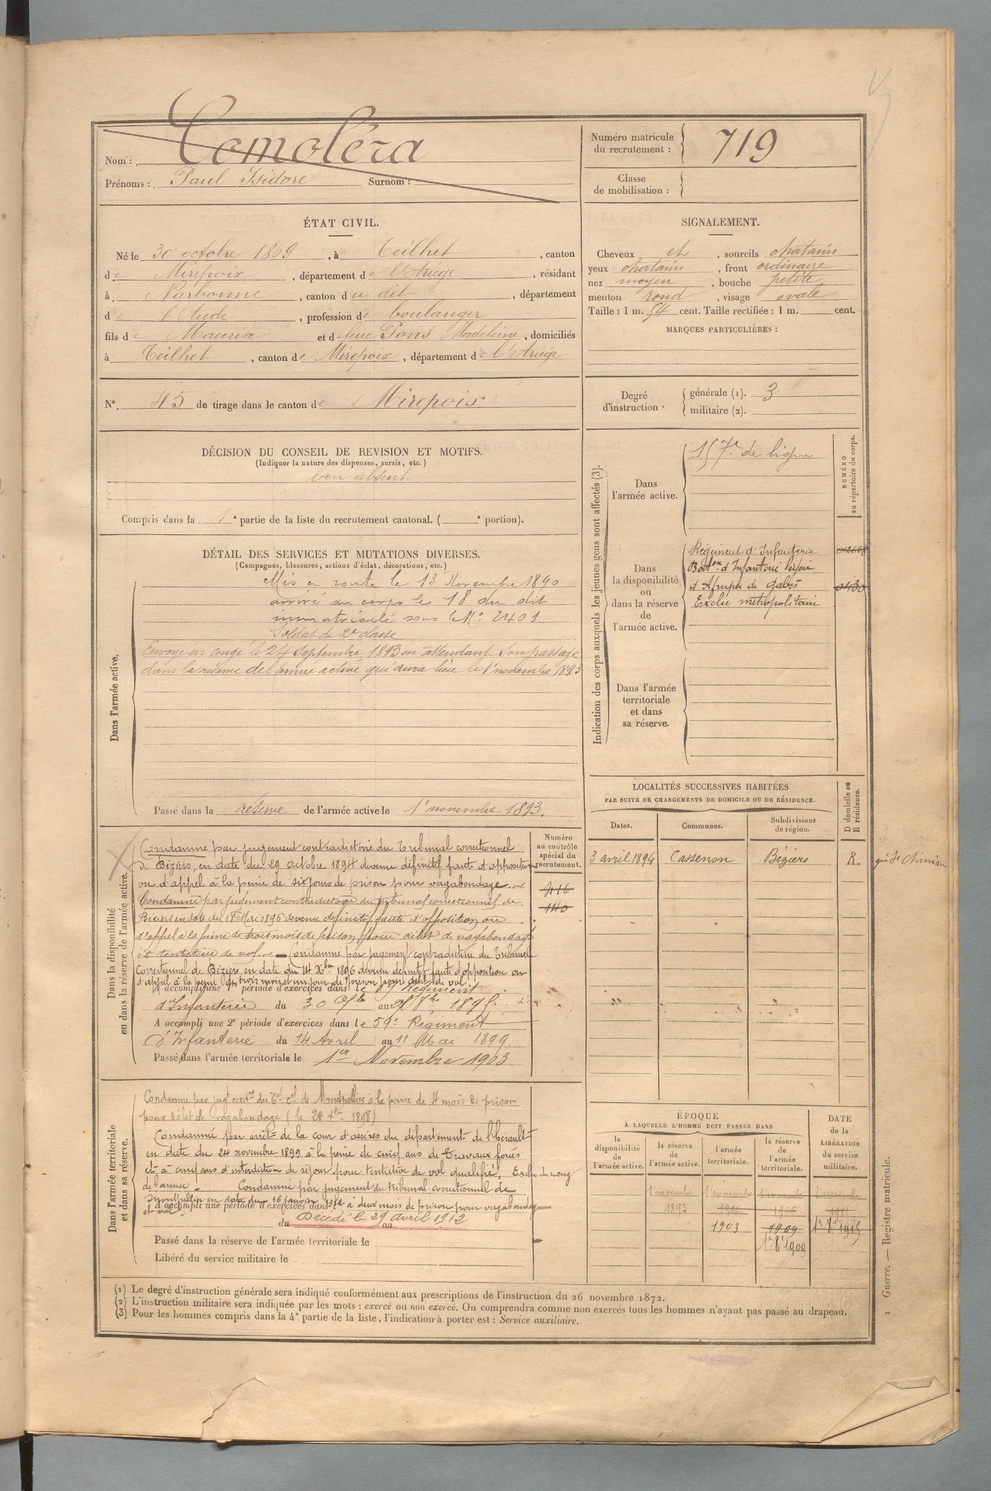 Nom : Comoléra
Prénoms : Paul Isidore Surnom :
Numéro matricule du recrutement : 719
Classe de mobilisation :
ÉTAT CIVIL.
Né le 30 octobre 1869, à Teilhet, canton
de Mirepoix, département de l'Ariège, résidant
à Narbonne, canton du dit, département
de l'Aude, profession de boulanger
fils de Maurice et de feue Pons Madeleine, domiciliés
à Teilhet, canton de Mirepoix, département de l'Ariège
N° 45 de tirage dans le canton de Mirepoix
SIGNALEMENT.
Cheveux et, sourcils chatains
yeux chatains, front ordinaire
nez moyen, bouche petite
menton rond, visage ovale
Taille : 1 m. 54 cent. Taille rectifiée : 1 m. cent.
MARQUES PARTICULIÈRES :
Degré d'instruction. générale (1). 3
militaire (2).
DÉCISION DU CONSEIL DE REVISION ET MOTIFS.
(Indiquer la nature des dispenses, sursis, etc.)
bon absent
Compris dans la 1e partie de la liste du recrutement cantonal. ( e portion).
DÉTAIL DES SERVICES ET MUTATIONS DIVERSES.
(Campagnes, blessures, actions d'éclat, décorations, etc.)
Dans l'armée active.
Mis en route le 13 Novembre 1890
arrivé au corps le 18 du dit
immatriculé sous le N° 2401
Soldat de 2e classe
Envoyé en congé le 24 Septembre 1893 en attendant son passage
dans la réserve de l'armée active qui aura lieu le 1er novembre 1893
Passé dans la réserve de l'armée active le 1er novembre 1893.
Indication des corps auxquels les jeunes gens sont affectés (3).
NUMÉRO au répertoire du corps.
Dans l'armée active.
157e de ligne
Dans la disponibilité ou dans la réserve de l'armée active.
Régiment d'Infanterie
Baton d'Infanterie légère
d'Afrique de Gabès
Exclu métropolitain
Dans l'armée territoriale et dans sa réserve.
LOCALITÉS SUCCESSIVES HABITÉES
PAR SUITE DE CHANGEMENTS DE DOMICILE OU DE RÉSIDENCE.
Dates. Communes. Subdivisions de région. D domicile ou R résidence.
3 avril 1894 Cessenon Béziers R.
Dans la disponibilité ou dans la réserve de l'armée active.
Numéro au contrôle spécial du recrutement.
416
140
Condamné par jugement contradictoire du Tribunal correctionnel
de Béziers, en date du 29 octobre 1894 devenu définitif faute d'opposition
ou d'appel à la peine de six jours de prison pour vagabondage.
Condamné par jugement contradictoire du tribunal correctionnel de
Béziers en date du 8 Mai 1896 devenu définitif faute d'opposition ou
d'appel à la peine de trois mois de prison pour délit de vagabondage
et tentative de vol. Condamné par jugement contradictoire du Tribunal
Correctionnel de Béziers en date du 14 Xbre 1896 devenu définitif faute d'opposition ou
d'appel à la peine de trois mois et un jour de prison pour délit de vol
A accompli une période d'exercices dans le Régiment
d'Infanterie du 30 au 1895
A accompli une 2e période d'exercices dans le 59e Régiment
d'Infanterie du 14 Avril au 11 Mai 1899
Passé dans l'armée territoriale le 1er Novembre 1903
Dans l'armée territoriale et dans sa réserve.
Condamné par jugt contre du Tal cel de Montpellier à la peine de 4 mois de prison
pour délit de vagabondage (le 1898)
Condamné par arrêt de la cour d'assises du département de l'Hérault
en date du 24 novembre 1899 à la peine de cinq ans de Travaux forcés
et à cinq ans d'interdiction de séjour pour tentative de vol qualifié. Exclu du rang
de l'armée. Condamné par jugement du tribunal correctionnel de
Montpellier en date du 16 janvier à deux mois de prison pour vagabondage
et vol.
A accompli une période d'exercices dans
du au
Décédé le 29 avril 1912
Passé dans la réserve de l'armée territoriale le
Libéré du service militaire le
ÉPOQUE
À LAQUELLE L'HOMME DOIT PASSER DANS
la disponibilité de l'armée active. la réserve de l'armée active. l'armée territoriale. la réserve de l'armée territoriale. DATE de la LIBÉRATION du service militaire.
1er novembre 1er novembre 1er novembre 1er novembre
1893
1903 1909 1er 8bre 1915
1er 8bre 1909
(1) Le degré d'instruction générale sera indiqué conformément aux prescriptions de l'instruction du 26 novembre 1872.
(2) L'instruction militaire sera indiquée par les mots : exercé ou non exercé. On comprendra comme non exercés tous les hommes n'ayant pas passé au drapeau.
(3) Pour les hommes compris dans la 4e partie de la liste, l'indication à porter est : Service auxiliaire.
1 Guerre. — Registre matricule.